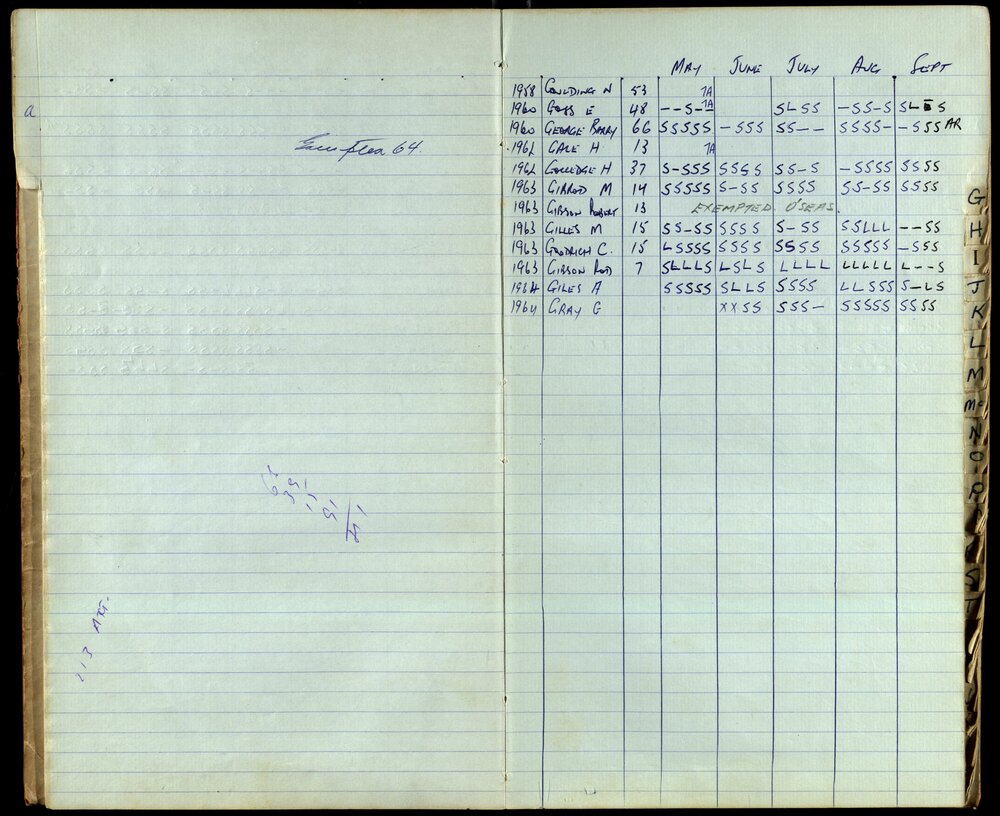 a
64.
113 ART.
MAY JUNE JULY AUG SEPT
1958 GOULDING N 53 TA
1960 GOSS E 48 --S- TA SLSS -SS-S SL S
1960 GEORGE BARRY 66 SSSSS -SSS SS-- SSSS- -SSS AR
1962 GALE H 13 TA
1962 GOLLEDGE H 37 S-SSS SSSS SS-S -SSSS SSSS
1963 GIRROD M 14 SSSSS S-SS SSSS SS-SS SSSS
1963 GIBSON ROBERT 13 EXEMPTED O'SEAS.
1963 GILLES M 15 SS-SS SSSS S-SS SSLLL --SS
1963 GOODRICH C. 15 LSSSS SSSS SSSS SSSSS -SSS
1963 GIBSON ROD 7 SLLLS LSLS LLLL LLLLL L--S
1964 GILES A SSSSS SLLS SSSS LLSSS S-LS
1964 GRAY G XXSS SSS- SSSSS SSSS
G
H
I
J
K
L
M
Mc
N
O
P
S
T